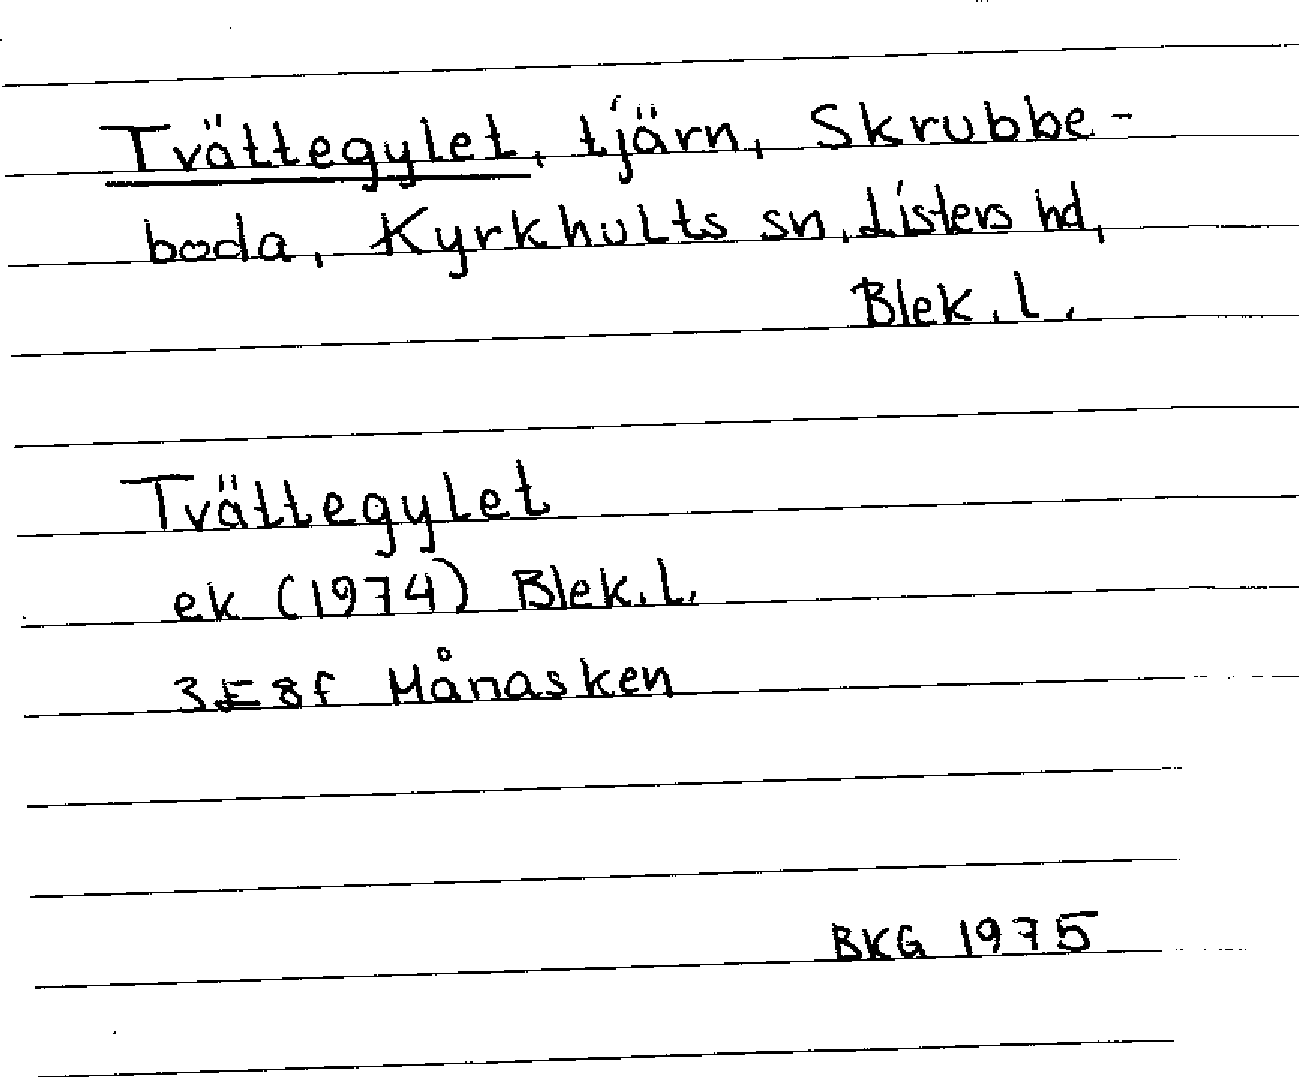 Tvättegylet, tjärn, Skrubbe-
boda, Kyrkhults sn, Listers hd,
Blek. l.
Tvättegylet
ek (1974) Blek. l.
3E8f Månasken
BKG 1975